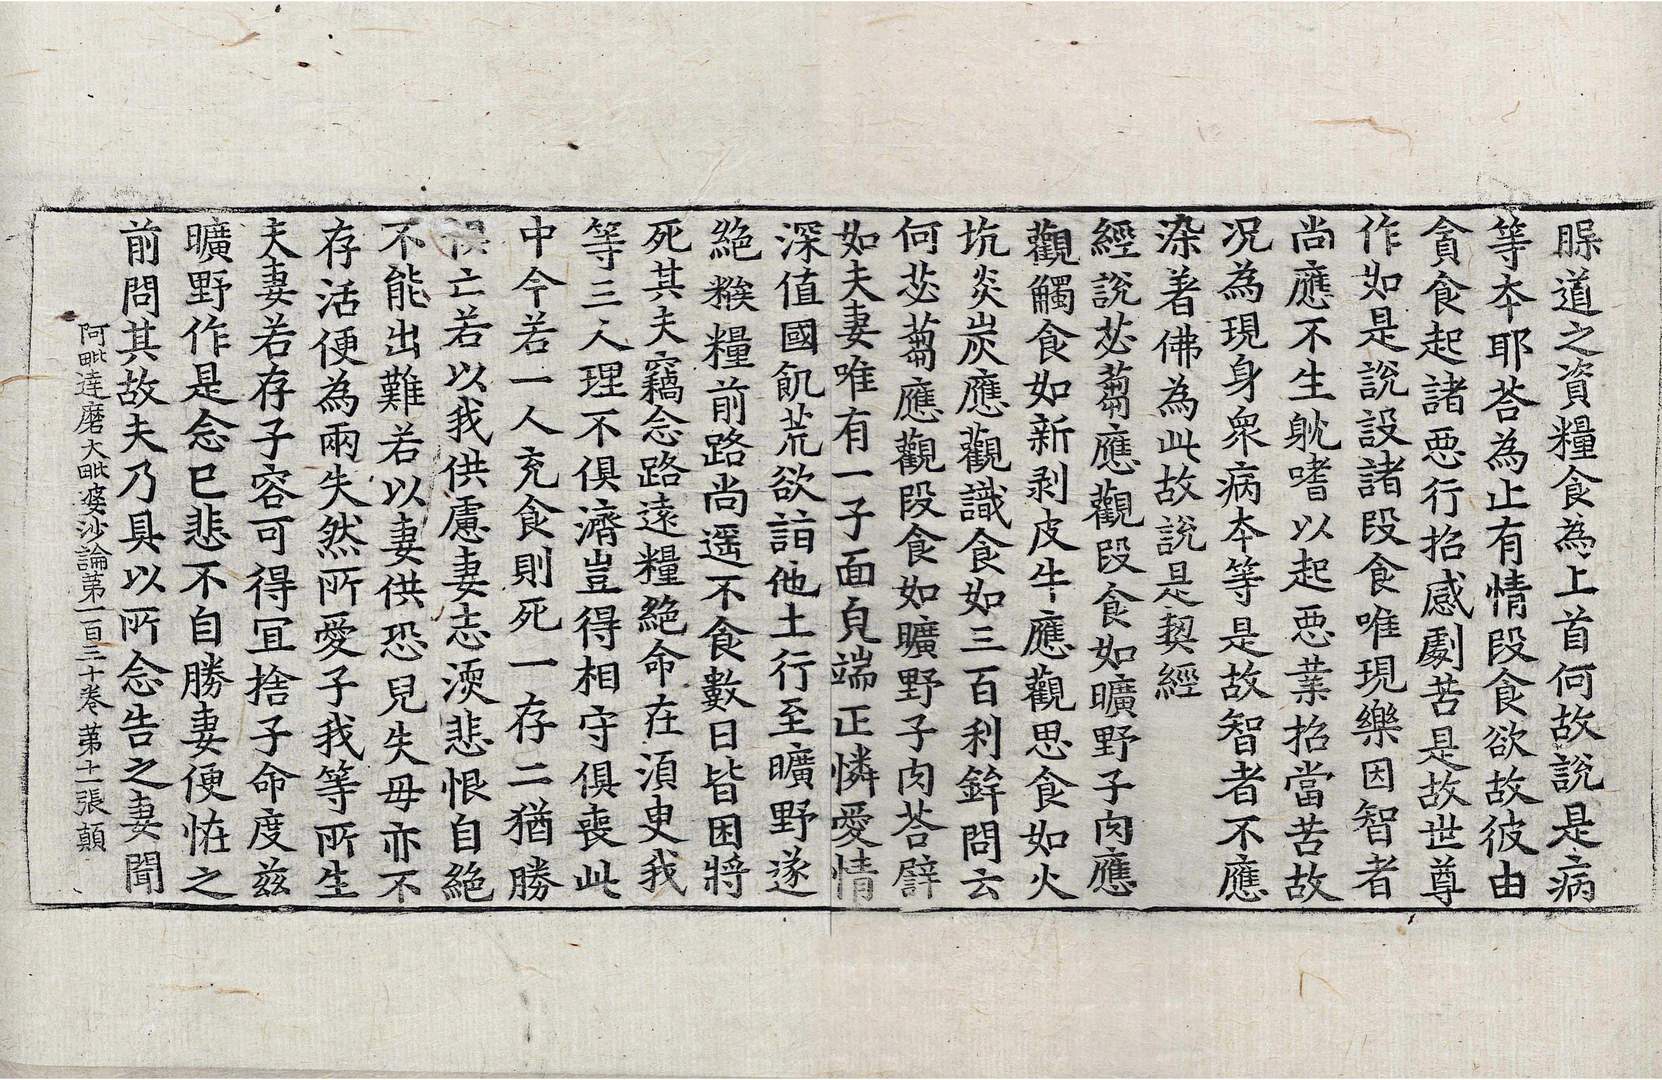 脲道之資糧食為上首何故說是病
等本耶荅為止有情段食欲故彼由
貪食起諸惡行招感劇苦是故世尊
作如是說設諸段食唯現樂因智者
尚應不生躭嗜以起惡業招當苦故
況為現身衆病本等是故智者不應
染著佛為此故說是契經
經說苾蒭應觀段食如曠野子肉應
觀觸食如新剥皮牛應觀思食如火
坑炎炭應觀識食如三百利鉾問云
何苾蒭應觀段食如曠野子肉荅譬
如夫妻唯有一子面皃端正憐愛情
深值國飢荒欲詣他土行至曠野遂
絶糇糧前路尚遥不食數日皆困將
死其夫竊念路遠糧絶命在湏臾我
等三人理不俱濟豈得相守俱喪此
中今若一人充食則死一存二猶勝
俱亡若以我供慮妻志㳙悲恨自絶
不能出難若以妻供恐兒失母亦不
存活便為兩失然所愛子我等所生
夫妻若存子容可得冝捨子命度茲
曠野作是念已悲不自勝妻便恠之
前問其故夫乃具以所念告之妻聞
阿毗達磨大毗婆沙論第一百三十卷 第十一張 顛